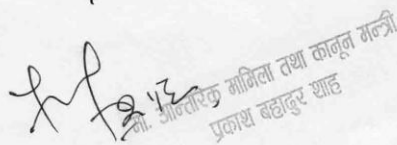 मा. आन्तरिक मामिला तथा कानून मन्त्री
प्रकाश बहादुर शाह